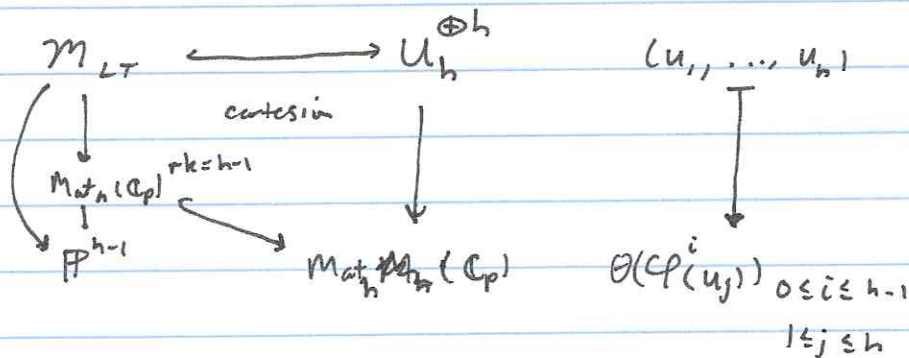 M_{LT} ⟷ U_h^{⊕h} (u_1, ..., u_h)
cartesian
Mat_h(ℂ_p)^{rk=h-1}
ℙ^{h-1} Mat_h(ℂ_p) θ(φ^i(u_j)) 0≤i≤h-1
1≤j≤h